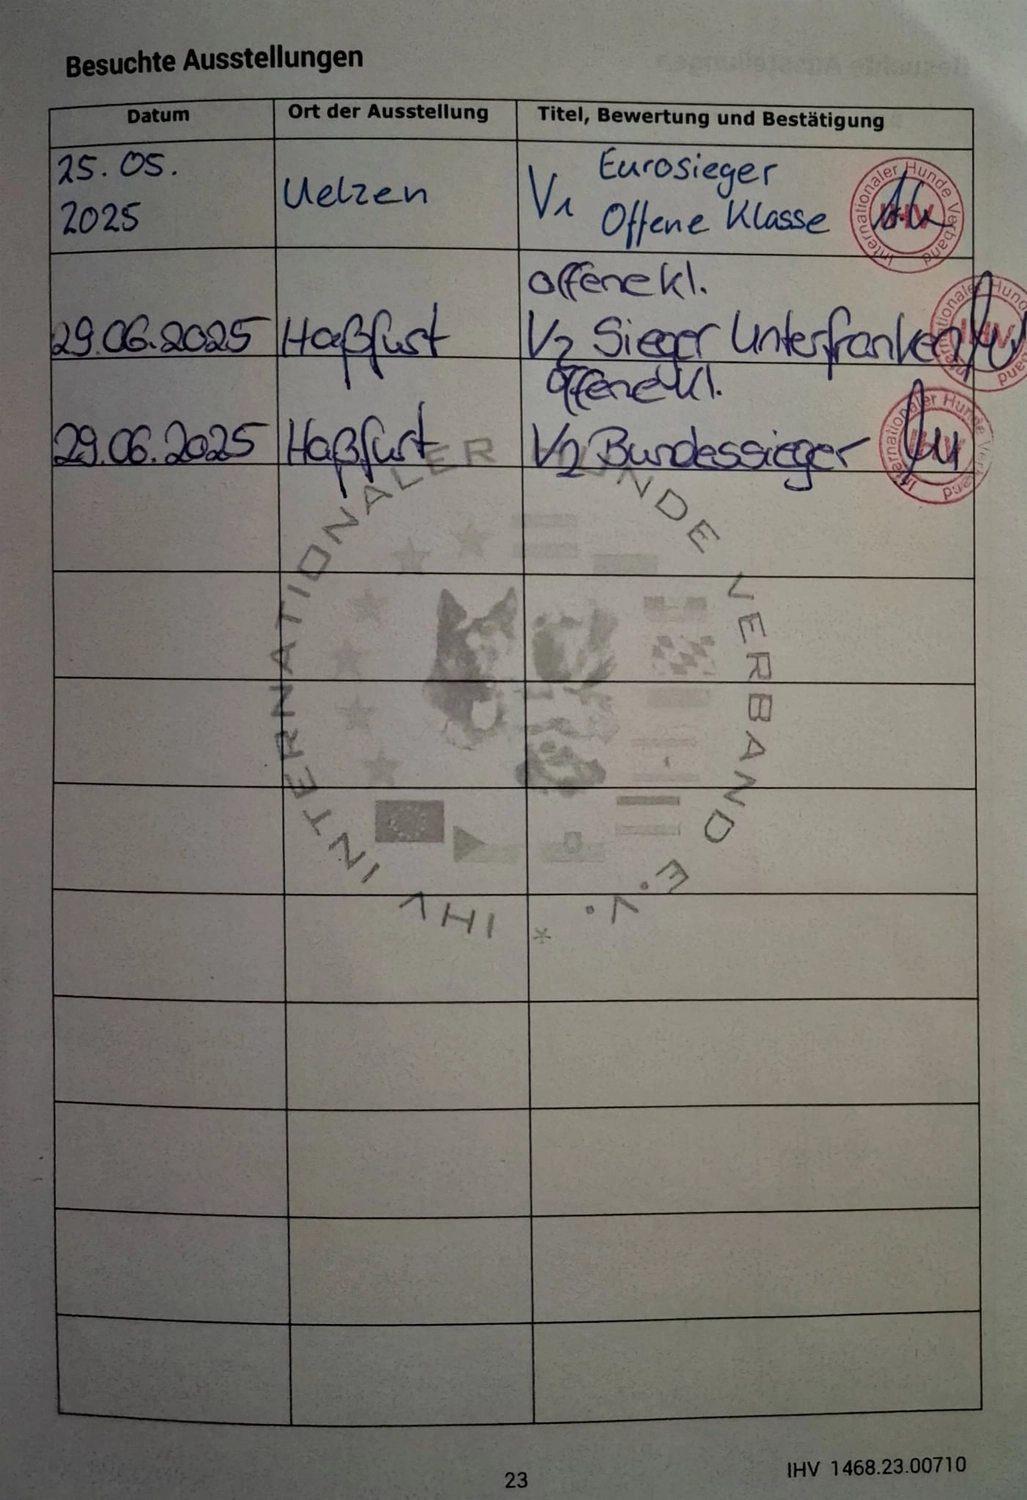 Besuchte Ausstellungen
Datum Ort der Ausstellung Titel, Bewertung und Bestätigung
25.05.
2025
Uelzen
V1
Eurosieger
Offene Klasse
Internationaler Hunde Verband
IHV
offene kl.
29.06.2025 Haßfurt V2 Sieger Unterfranken
offene kl.
29.06.2025 Haßfurt V2 Bundessieger
Internationaler Hunde Verband
IHV
IHV INTERNATIONALER HUNDE VERBAND E.V. *
23
IHV 1468.23.00710